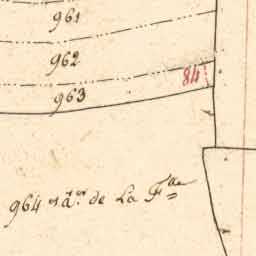 961
962
84
963
964 de La F^lle